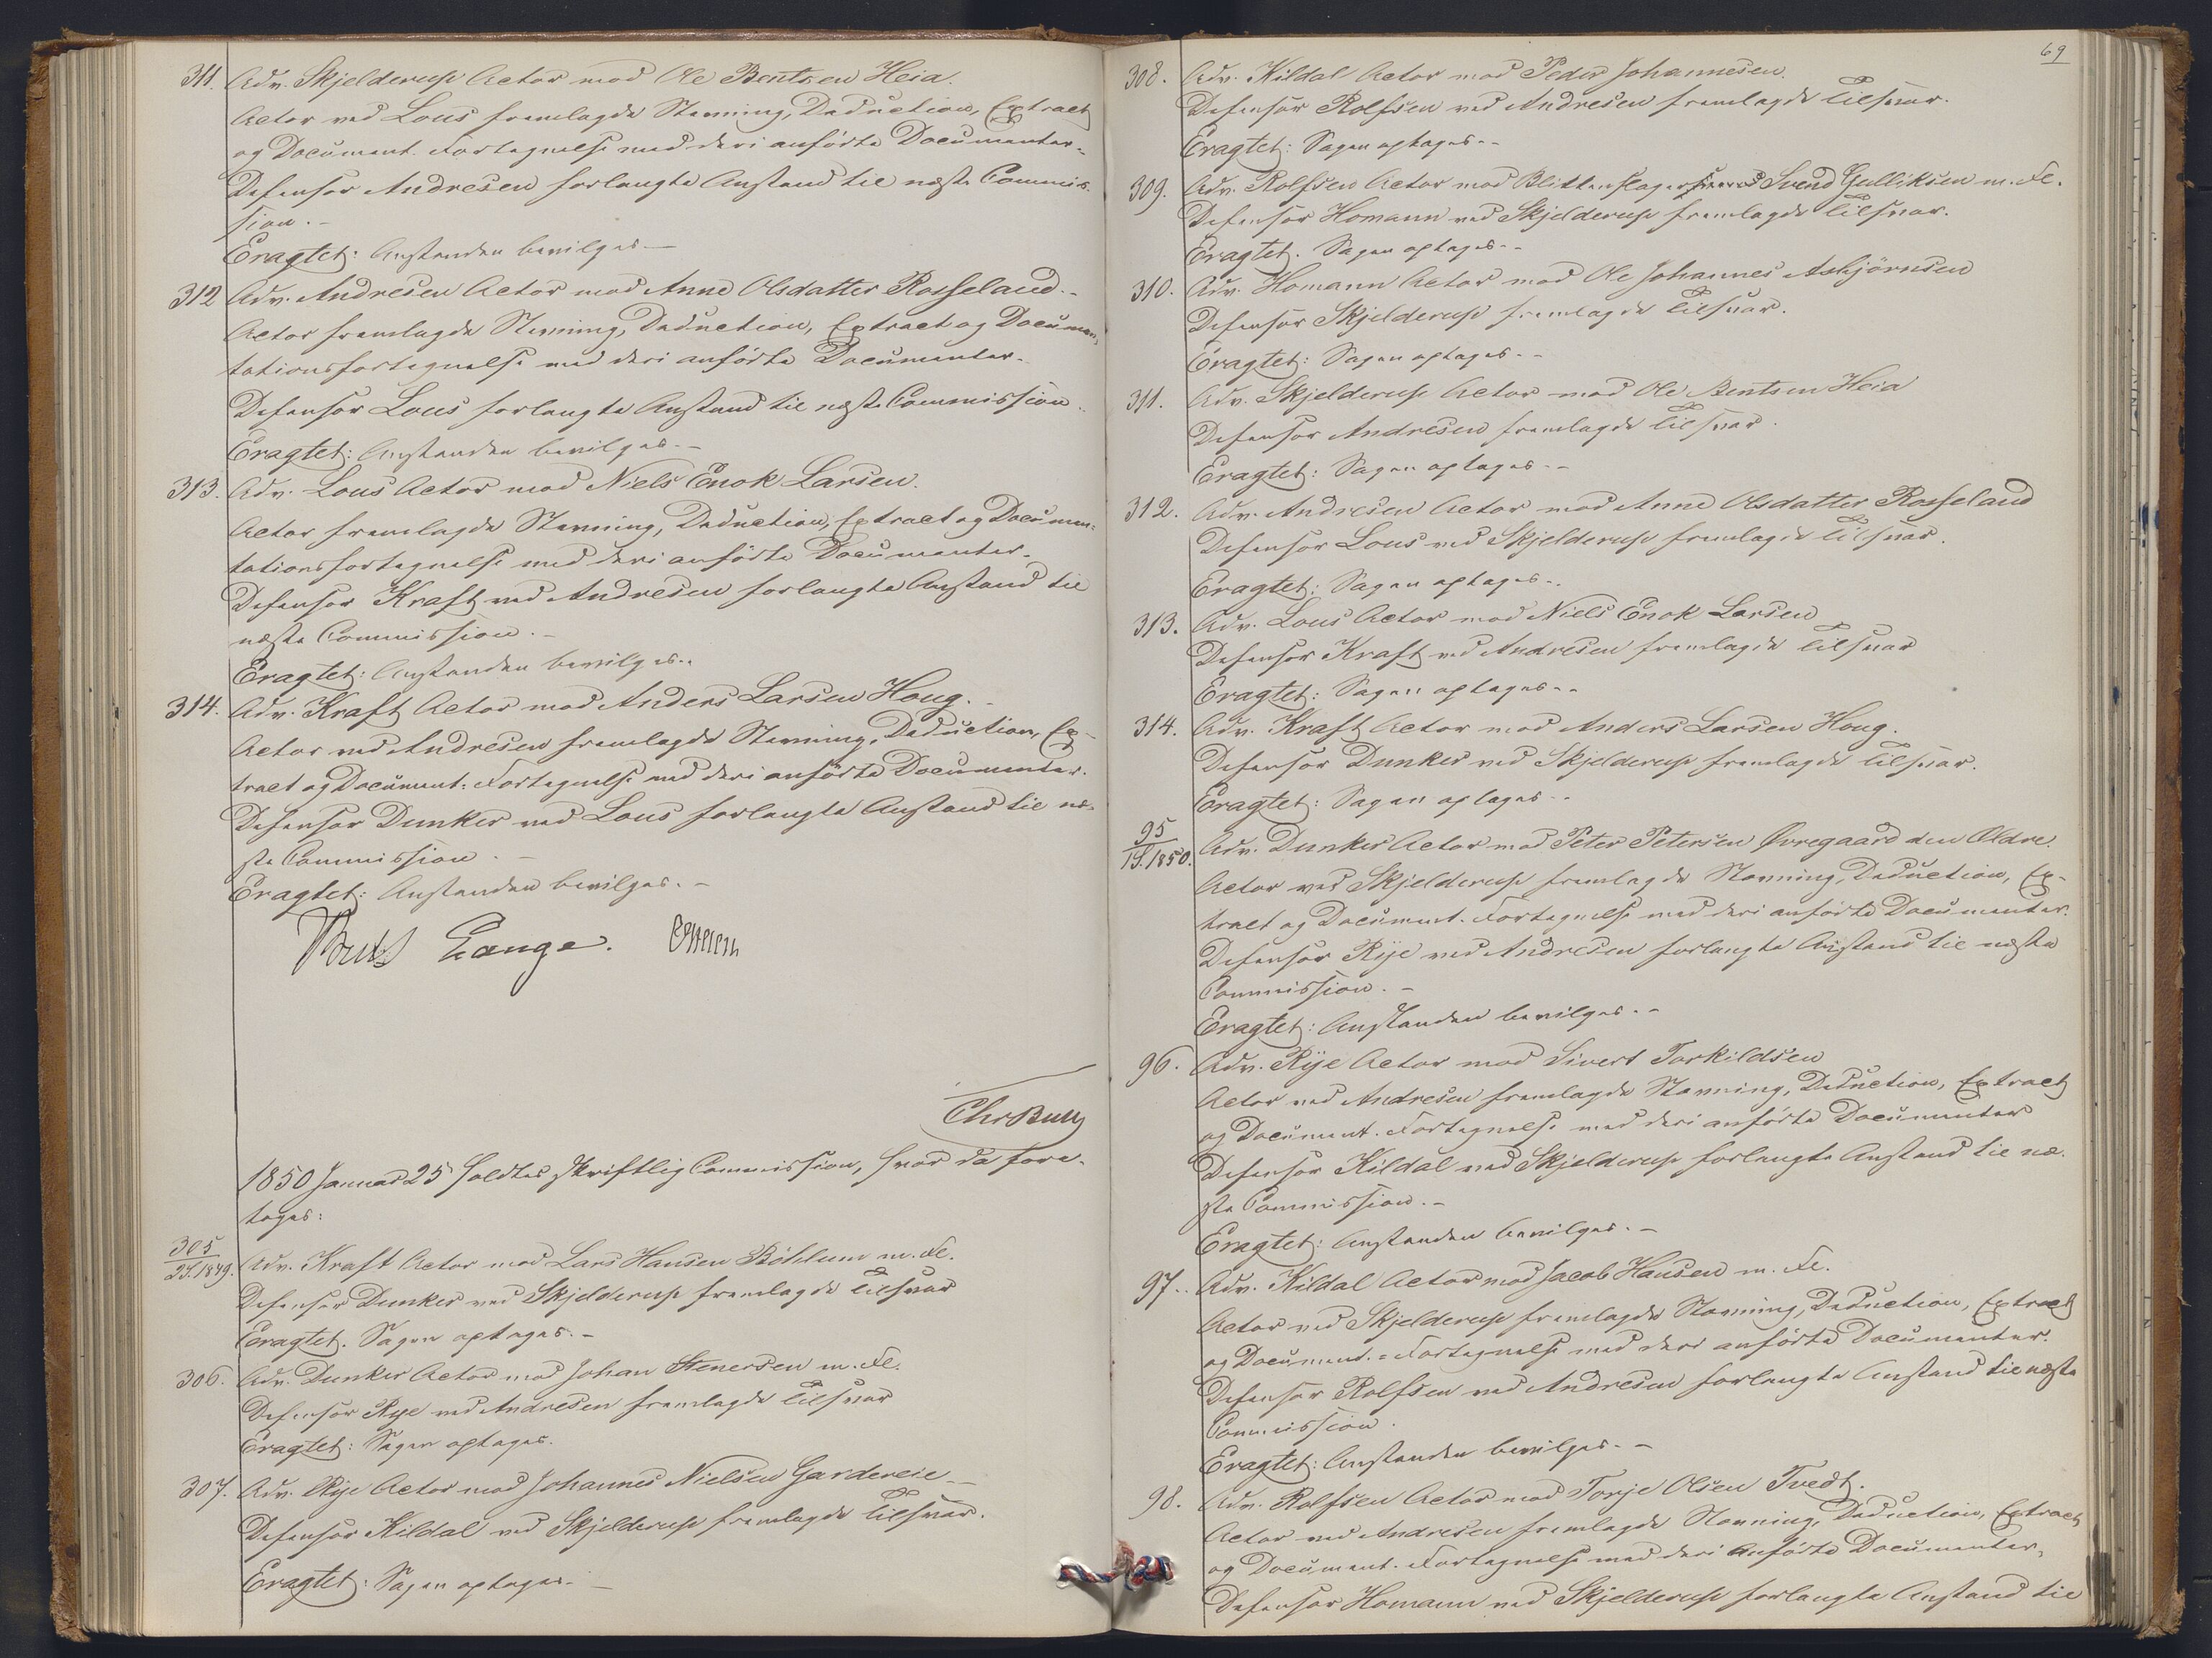 311. Adv. Skjelderup Actor mod Ole Bentsen Heia.
Actor ved Lous fremlagde Stevning, Deduction, Extract
og Document. Fortegnelse med deri anförte Documenter.
Defensor Andresen forlangte Anstand til næste Commis-
sion.
Eragtet: Anstanden bevilges.
312 Adv. Andresen Actor mod Anne Olsdatter Rosseland.
Actor fremlagde Stevning, Deduction, Extract og Documen-
tationsfortegnelse med deri anförte Documenter.
Defensor Lous forlangte Anstand til næste Commission.
Eragtet: Anstanden bevilges.
313. Adv. Lous Actor mod Niels Enok Larsen.
Actor fremlagde Stevning, Deduction, Extract og Documen-
tationsfortegnelse med deri anförte Documenter.
Defensor Kraft ved Andresen forlangte Anstand til
næste Commission.
Eragtet: Anstanden bevilges.
314. Adv. Kraft Actor mod Anders Larsen Houg.
Actor ved Andresen fremlagde Stevning, Deduction, Ex-
tract og Document. Fortegnelse med deri anförte Documenter.
Defensor Dunker ved Lous forlangte Anstand til næ-
ste Commission.
Eragtet: Anstanden bevilges.
Lange.
Chr Bull
1850 Januar 25 holdtes skriftlig Commission, hvor da fore-
toges:
305
2S. 1849. Adv. Kraft Actor mod Lars Hansen Böhlum m. Fl.
Defensor Dunker ved Skjelderup fremlagde Tilsvar
Eragtet. Sagen optages.
306. Adv. Dunker Actor mod Johan Stenersen m. Fl.
Defensor Rye ved Andresen fremlagde Tilsvar
Eragtet: Sagen optages.
307. Adv. Rye Actor mod Johannes Nielsen Gardereie
Defensor Kildal ved Skjelderup fremlagde Tilsvar.
Eragtet: Sagen optages.
69
308. Adv. Kildal Actor mod Peder Johannesen.
Defensor Rolfsen ved Andresen fremlagde Tilsvar.
Eragtet: Sagen optages.
309. Adv. Rolfsen Actor mod Blikkenslager Svend Gulliksen m. Fl.
Defensor Homann ved Skjelderup fremlagde Tilsvar.
Eragtet. Sagen optages.
310. Adv. Homann Actor mod Ole Johannes Asbjörnsen
Defensor Skjelderup fremlagde Tilsvar.
Eragtet: Sagen optages.
311. Adv. Skjelderup Actor mod Ole Bentsen Heia
Defensor Andresen fremlagde Tilsvar.
Eragtet: Sagen optages.
312. Adv. Andresen Actor mod Anne Olsdatter Rosseland
Defensor Lous ved Skjelderup fremlagde Tilsvar.
Eragtet: Sagen optages.
313. Adv. Lous Actor mod Niels Enok Larsen
Defensor Kraft ved Andresen fremlagde Tilsvar
Eragtet: Sagen optages.
314. Adv. Kraft Actor mod Anders Larsen Houg.
Defensor Dunker ved Skjelderup fremlagde Tilsvar.
Eragtet: Sagen optages.
95
1S. 1850. Adv. Dunker Actor mod Peter Petersen Øvregaard den Ældre.
Actor ved Skjelderup fremlagde Stevning, Deduction, Ex-
tract og Document. Fortegnelse med deri anförte Documenter.
Defensor Rye ved Andresen forlangte Anstand til næste
Commission.
Eragtet: Anstanden bevilges.
96. Adv. Rye Actor mod Sivert Torkildsen
Actor ved Andresen fremlagde Stevning, Deduction, Extract
og Document. Fortegnelse med deri anförte Documenter
Defensor Kildal ved Skjelderup forlangte Anstand til næ-
ste Commission.
Eragtet: Anstanden bevilges.
97. Adv. Kildal Actor mod Jacob Hansen m. Fl.
Actor ved Skjelderup fremlagde Stevning, Deduction, Extract
og Document. Fortegnelse med deri anförte Documenter.
Defensor Rolfsen ved Andresen forlangte Anstand til næste
Commission.
Eragtet: Anstanden bevilges.
98. Adv. Rolfsen Actor mod Torje Olsen Tvedt.
Actor ved Andresen fremlagde Stevning, Deduction, Extract
og Document. Fortegnelse med deri anförte Documenter,
Defensor Homann ved Skjelderup forlangte Anstand til